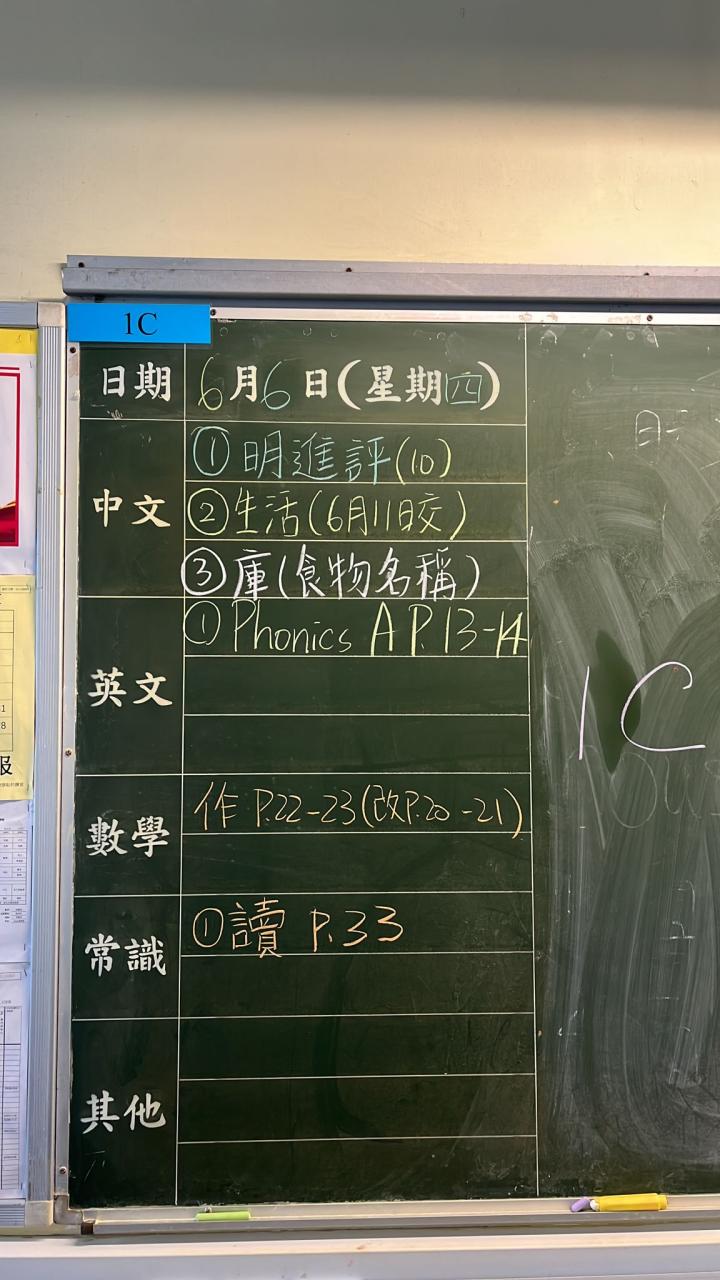 1C
日期 6月6日(星期四)
中文
①明進評(10)
②生活(6月11日交)
③庫(食物名稱)
英文
①Phonics A P.13-14
數學
作 P.22-23(改P.20-21)
常識
①讀 P.33
其他
1C
報